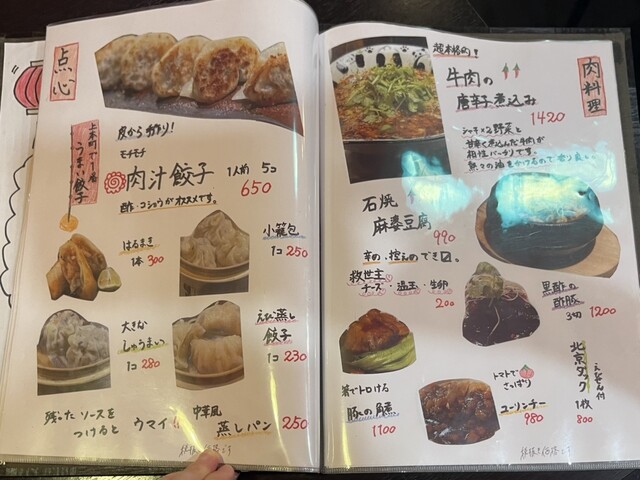 点心
上本町で1番
うまい餃子
皮から手作り!
モチモチ
肉汁餃子
1人前 5コ
650
酢・コショウがオススメです。
はるまき
1本 300
小籠包
1コ 250
大きな
しゅうまい
1コ 280
えび蒸し
餃子
1コ 230
残ったソースを
つけると ウマイ
中華風
蒸しパン 250
超本格的!
肉料理
牛肉の
唐辛子煮込み
1420
シャキシャキ野菜と
甘辛く煮込んだ牛肉が
相性バーチリです。
石焼
麻婆豆腐
990
辛め、控えめでき☑。
救世主
チーズ・温玉・生卵
200
黒酢の
酢豚
3切 1200
箸でトロける
豚の角煮
1100
トマトで
さっぱり
ユーリンチー
980
北京ダック
1枚
800